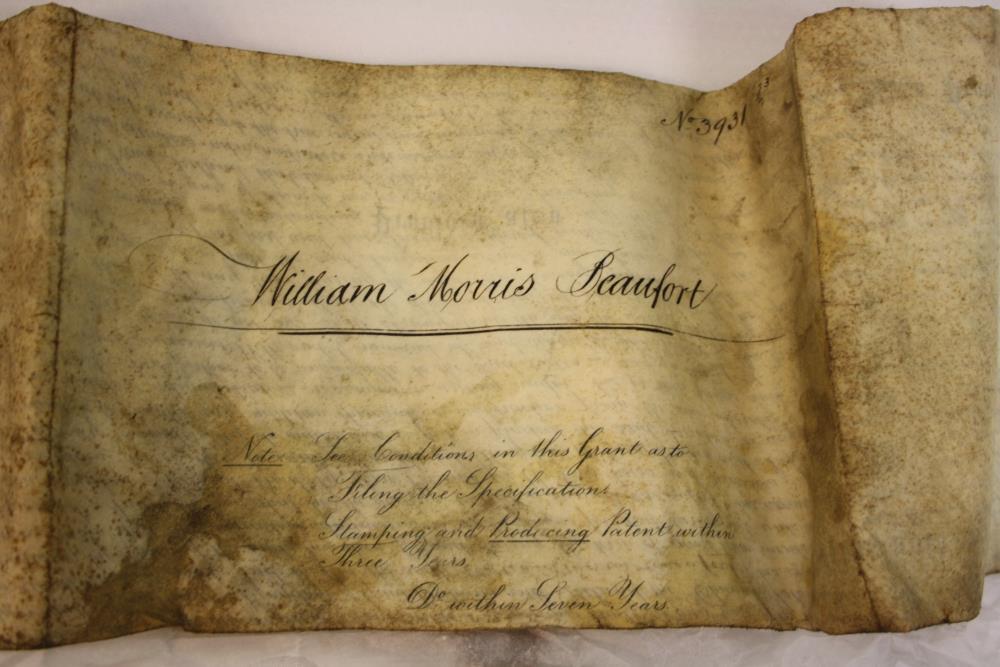 No 3931
William Morris Beaufort
Note See Conditions in this Grant as to
Filing the Specification.
Stamping and Producing Patent within
Three Years
Do within Seven Years.